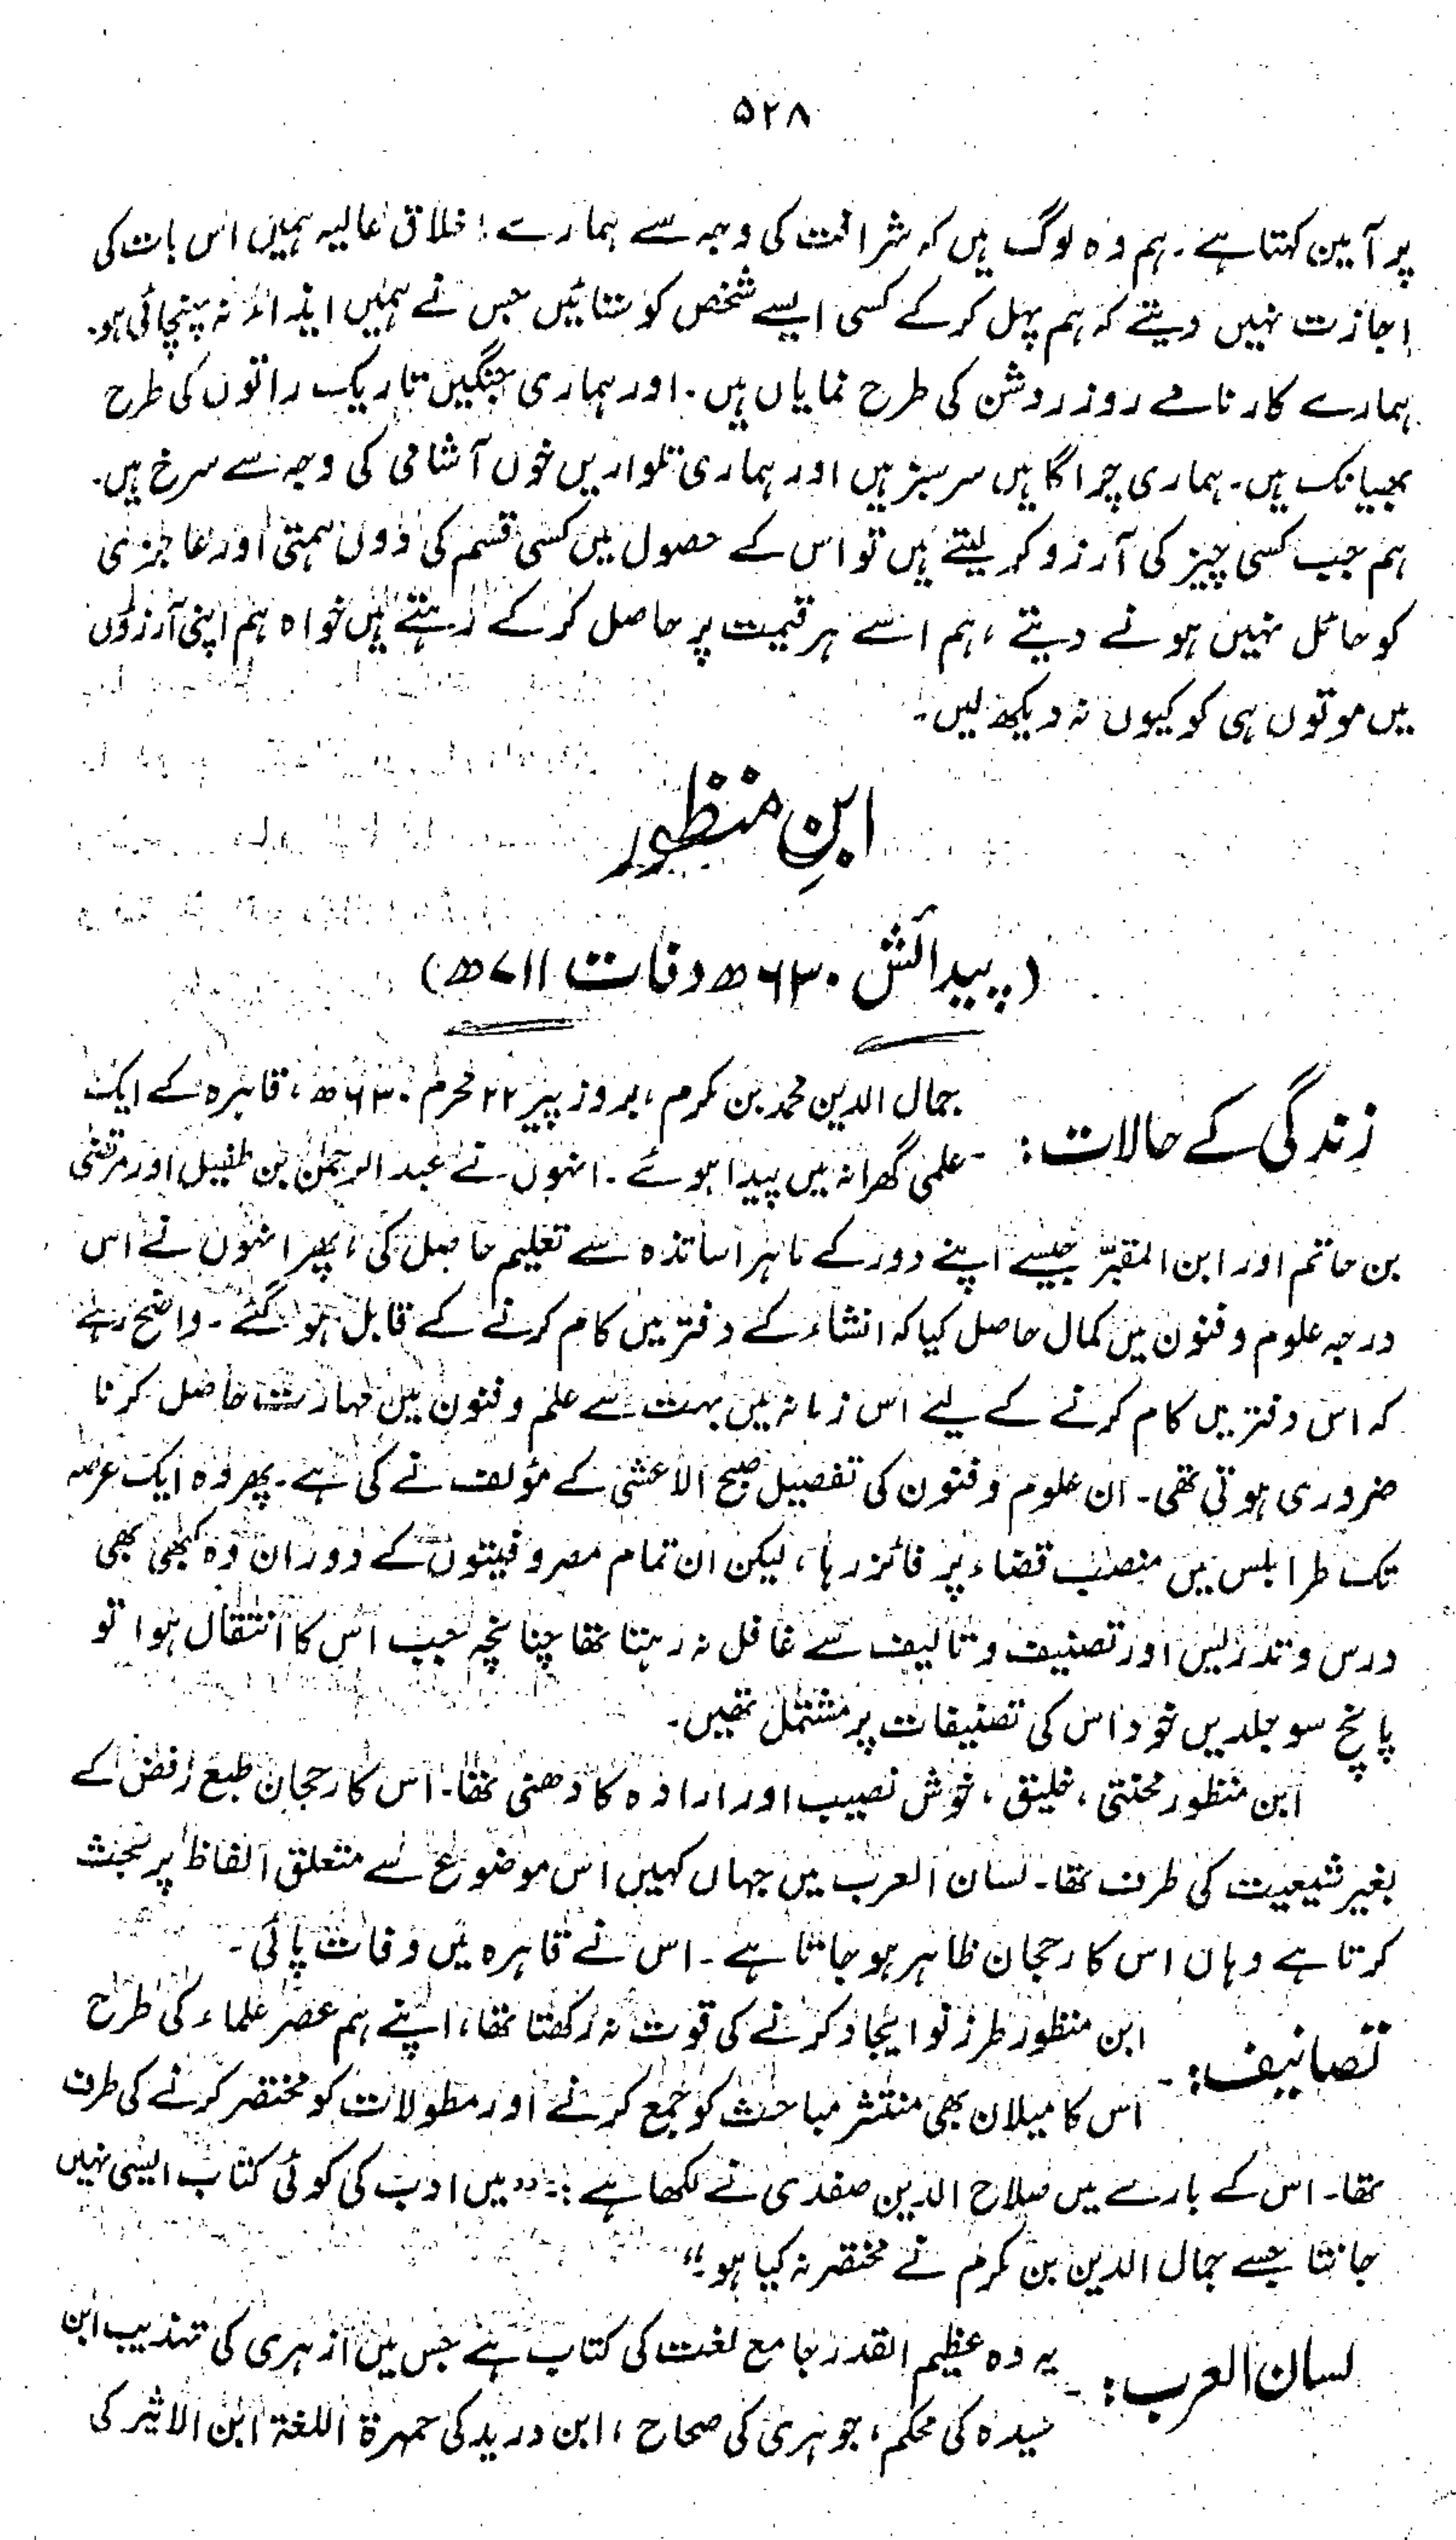 ۵۲۸
پر آمین کہتا ہے۔ ہم وہ لوگ ہیں کہ شرافت کی وجہ سے ہمارے اخلاق عالیہ ہمیں اس بات کی
اجازت نہیں دیتے کہ ہم پہل کر کے کسی ایسے شخص کو ستائیں جس نے ہمیں ایذاء نہ پہنچائی ہو۔
ہمارے کارنامے روز روشن کی طرح نمایاں ہیں۔ اور ہماری جنگیں تاریک راتوں کی طرح
بھیانک ہیں۔ ہماری چراگاہیں سرسبز ہیں اور ہماری تلواریں خوں آشامی کی وجہ سے سرخ ہیں۔
ہم جب کسی چیز کی آرزو کر لیتے ہیں تو اس کے حصول میں کسی قسم کی دوں ہمتی اور عاجزی
کو حائل نہیں ہونے دیتے، ہم اسے ہر قیمت پر حاصل کر کے رہتے ہیں خواہ ہم اپنی آرزؤں
میں موتوں ہی کو کیوں نہ دیکھ لیں۔
ابنِ منظور
(پیدائش ۶۳۰ھ وفات ۷۱۱ھ)
زندگی کے حالات:۔ جمال الدین محمد بن مکرم، بروز پیر ۲۲ محرم ۶۳۰ھ، قاہرہ کے ایک
علمی گھرانہ میں پیدا ہوئے۔ انہوں نے عبدالرحمٰن بن طفیل اور مرتضی
بن حاتم اور ابن المقبرّ جیسے اپنے دور کے ماہر اساتذہ سے تعلیم حاصل کی، پھر انہوں نے اس
درجہ علوم و فنون میں کمال حاصل کیا کہ انشاء کے دفتر میں کام کرنے کے قابل ہو گئے۔ واضح رہے
کہ اس دفتر میں کام کرنے کے لیے اس زمانہ میں بہت سے علم و فنون میں مہارت حاصل کرنا
ضروری ہوتی تھی۔ ان علوم و فنون کی تفصیل صبح الاعشی کے مؤلف نے کی ہے۔ پھر وہ ایک عرصہ
تک طرابلس میں منصب قضاء پر فائز رہا، لیکن ان تمام مصروفیتوں کے دوران وہ کبھی بھی
درس و تدریس اور تصنیف و تالیف سے غافل نہ رہتا تھا چنانچہ جب اس کا انتقال ہوا تو
پانچ سو جلدیں خود اس کی تصنیفات پر مشتمل تھیں۔
ابن منظور محنتی، خلیق، خوش نصیب اور ارادہ کا دھنی تھا۔ اس کا رجحان طبع رفض کے
بغیر شیعیت کی طرف تھا۔ لسان العرب میں جہاں کہیں اس موضوع سے متعلق الفاظ پر بحث
کرتا ہے وہاں اس کا رجحان ظاہر ہو جاتا ہے۔ اس نے قاہرہ میں وفات پائی۔
تصانیف:۔ ابن منظور طرز نو ایجاد کرنے کی قوت نہ رکھتا تھا، اپنے ہم عصر علماء کی طرح
اس کا میلان بھی منتشر مباحث کو جمع کرنے اور مطولات کو مختصر کرنے کی طرف
تھا۔ اس کے بارے میں صلاح الدین صفدی نے لکھا ہے:۔ ”میں ادب کی کوئی کتاب ایسی نہیں
جانتا جسے جمال الدین بن مکرم نے مختصر نہ کیا ہو۔“
لسان العرب:۔ یہ وہ عظیم القدر جامع لغت کی کتاب ہے جس میں ازہری کی تہذیب ابن
سیدہ کی محکم، جوہری کی صحاح، ابن درید کی جمہرۃ اللغۃ ابن الاثیر کی